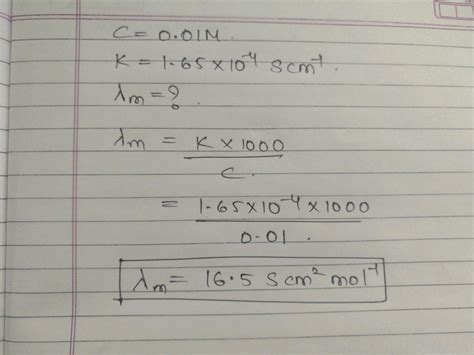 C = 0.01M.
K = 1.65×10⁻⁴ S cm⁻¹.
λm = ?.
λm = K × 1000
C.
= 1.65×10⁻⁴ × 1000
0.01.
λm = 16.5 S cm² mol⁻¹